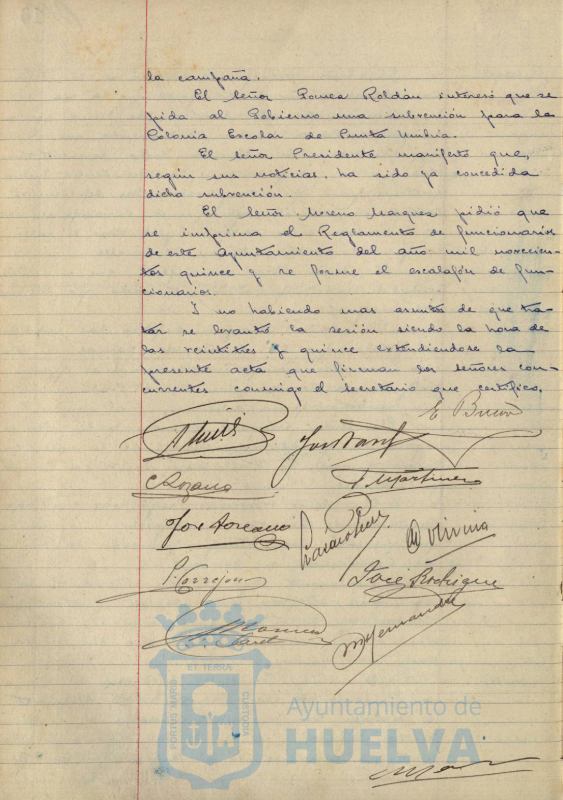 la campaña.
El Señor Ponce Roldán interesó que se
pida al Gobierno una subvención para la
Colonia Escolar de Punta Umbria.
El señor Presidente manifestó que,
según sus noticias, ha sido ya concedida
dicha subvención.
El Señor Moreno Marquez pidió que
se imprima el Reglamento de funcionarios
de este Ayuntamiento del año mil novecien-
tos quince y se forme el escalafón de fun-
cionarios.
Y no habiendo mas asuntos de que tra-
tar se levantó la sesión siendo la hora de
las veintitres y quince extendiendose la
presente acta que firman los señores con-
currentes conmigo el secretario que certifico.
José
José Rodrigue
M Hernandez
ET TERRA
PORTUS MARIS
CUSTODIA
Ayuntamiento de
HUELVA